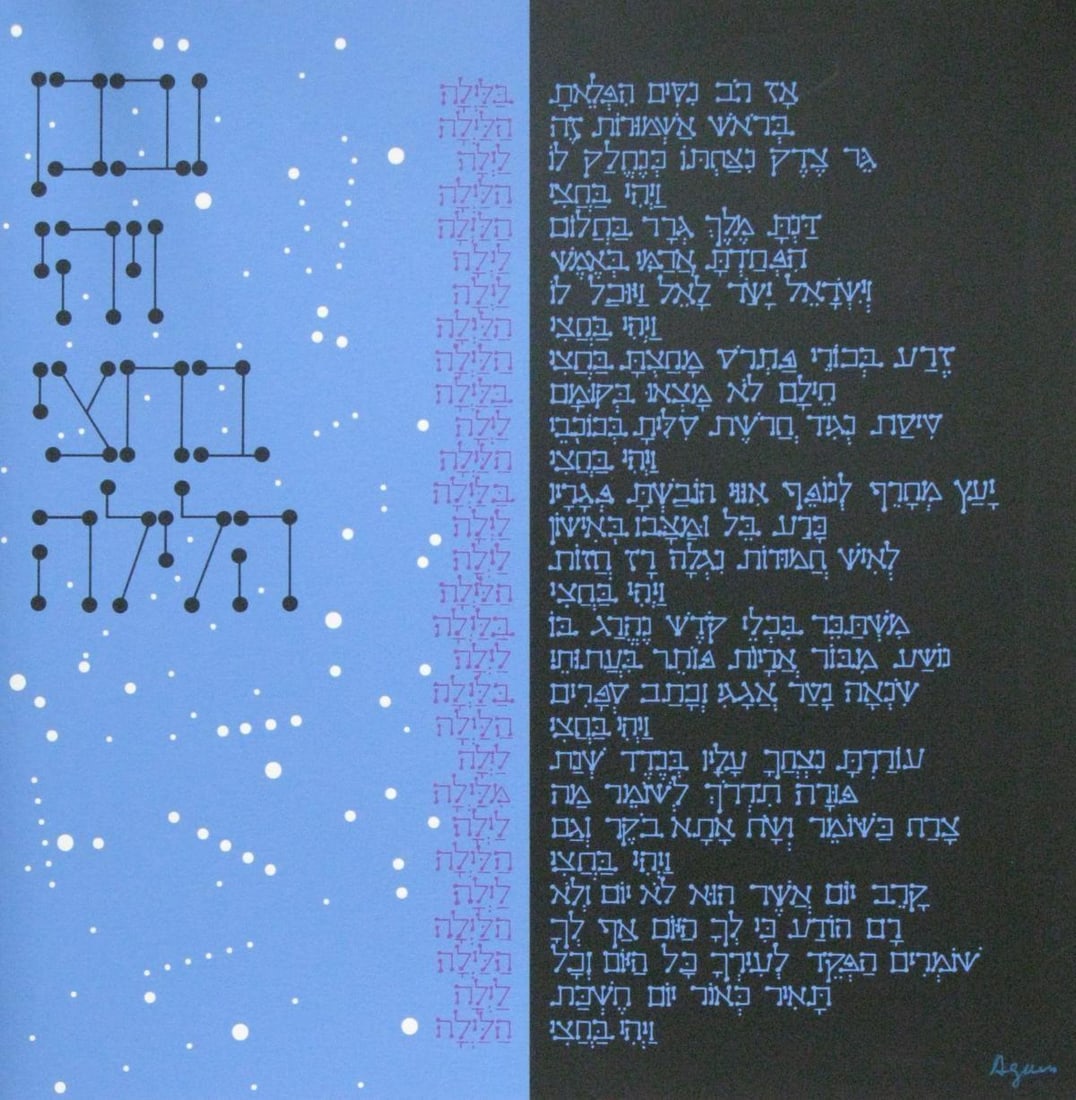 ובכן
ויהי
בחצי
הלילה
אז רב נסים הפלאת בלילה
בראש אשמורות זה הלילה
גר צדק נצחתו כנחלק לו לילה
ויהי בחצי הלילה
דנת מלך גרר בחלום הלילה
הפחדת ארמי באמש לילה
וישראל ישר לאל ויוכל לו לילה
ויהי בחצי הלילה
זרע בכורי פתרס מחצת בחצי הלילה
חילם לא מצאו בקומם בלילה
טיסת נגיד חרשת סלית בכוכבי לילה
ויהי בחצי הלילה
יעץ מחרף לנופף אווי הובשת פגריו בלילה
כרע בל ומצבו באישון לילה
לאיש חמודות נגלה רז חזות לילה
ויהי בחצי הלילה
משתכר בכלי קדש נהרג בו בלילה
נושע מבור אריות פותר בעתותי לילה
שנאה נטר אגגי וכתב ספרים בלילה
ויהי בחצי הלילה
עוררת נצחך עליו בנדד שנת לילה
פורה תדרוך לשומר מה מלילה
צרח כשומר ושח אתא בקר וגם לילה
ויהי בחצי הלילה
קרב יום אשר הוא לא יום ולא לילה
רם הודע כי לך היום אף לך הלילה
שומרים הפקד לעירך כל היום וכל הלילה
תאיר כאור יום חשכת לילה
ויהי בחצי הלילה
Agam